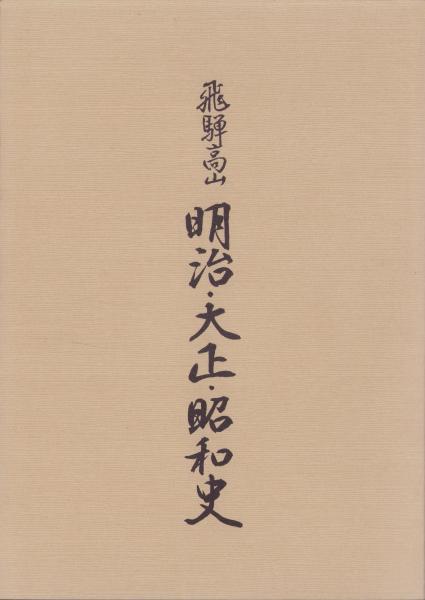 飛騨高山
明治・大正・昭和史